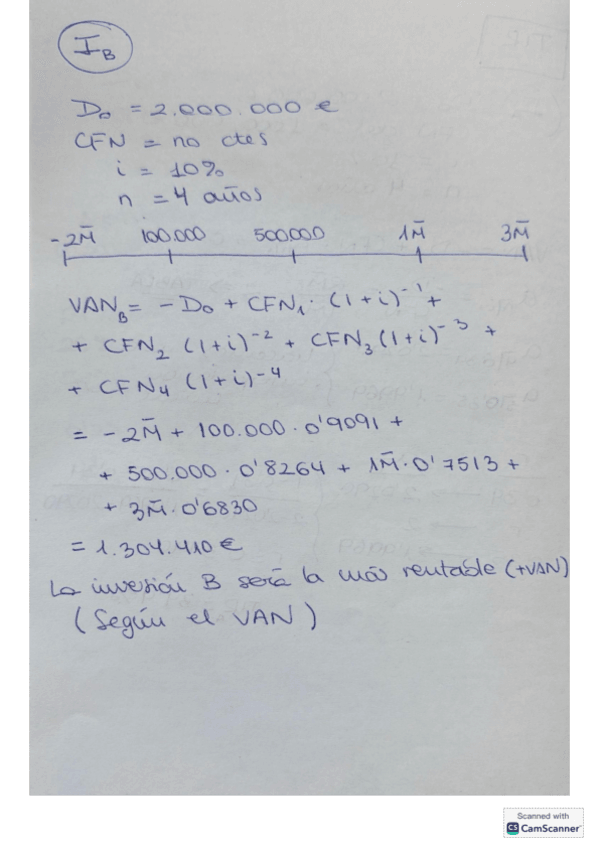 I_B
D₀ = 2.000.000 €
CFN = no ctes
i = 10%
n = 4 años
-2M̄ 100.000 500.000 1M̄ 3M̄
VAN_B = - D₀ + CFN₁ · (1+i)⁻¹ +
+ CFN₂ (1+i)⁻² + CFN₃ (1+i)⁻³ +
+ CFN₄ (1+i)⁻⁴
= - 2M̄ + 100.000 · 0'9091 +
+ 500.000 · 0'8264 + 1M̄ · 0'7513 +
+ 3M̄ · 0'6830
= 1.304.410 €
La inversión B será la más rentable (+VAN)
(Según el VAN)
Scanned with
CS CamScanner